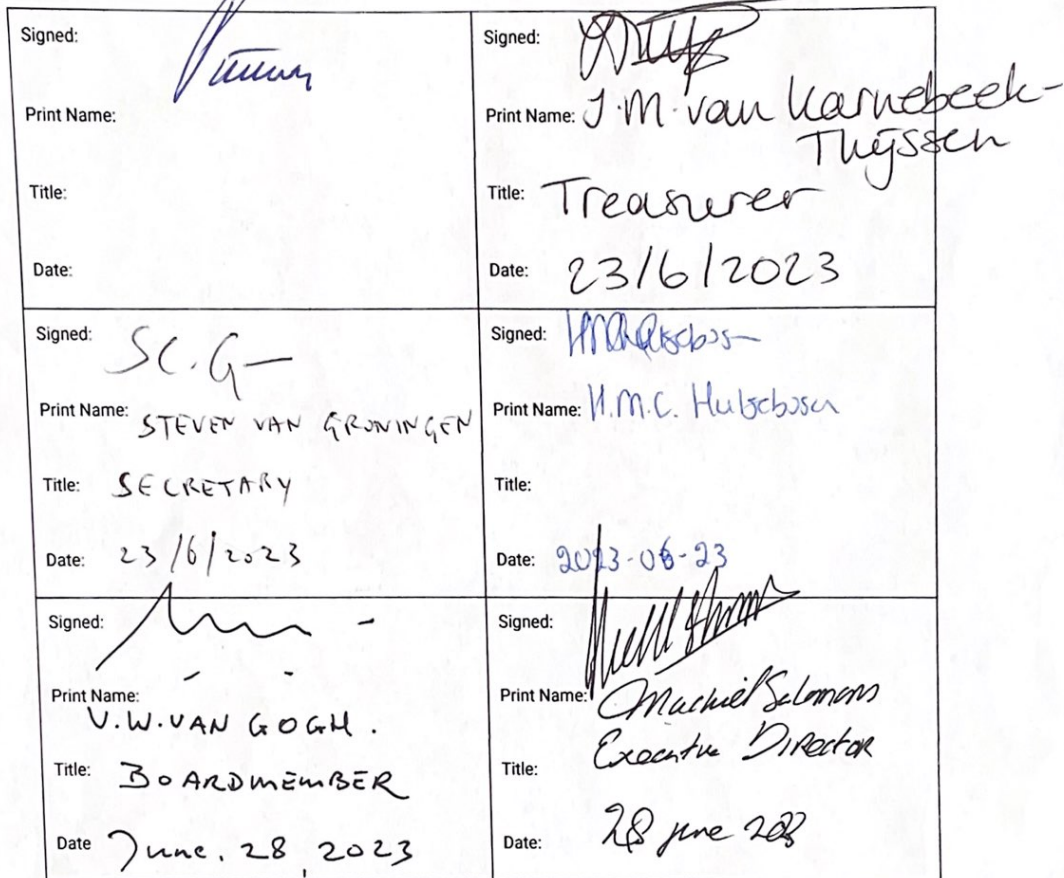 Signed:
Print Name:
Title:
Date:
Signed:
Print Name: J.M. van Karnebeek-
Thijssen
Title: Treasurer
Date: 23/6/2023
Signed: SC.G
Print Name: STEVEN VAN GRONINGEN
Title: SECRETARY
Date: 23/6/2023
Signed:
Print Name: H.M.C. Hulsebosch
Title:
Date: 2023-06-23
Signed:
Print Name:
V.W. VAN GOGH.
Title: BOARDMEMBER
Date June. 28, 2023
Signed:
Print Name: Machiel Salomons
Executive Director
Title:
Date: 28 june 2023